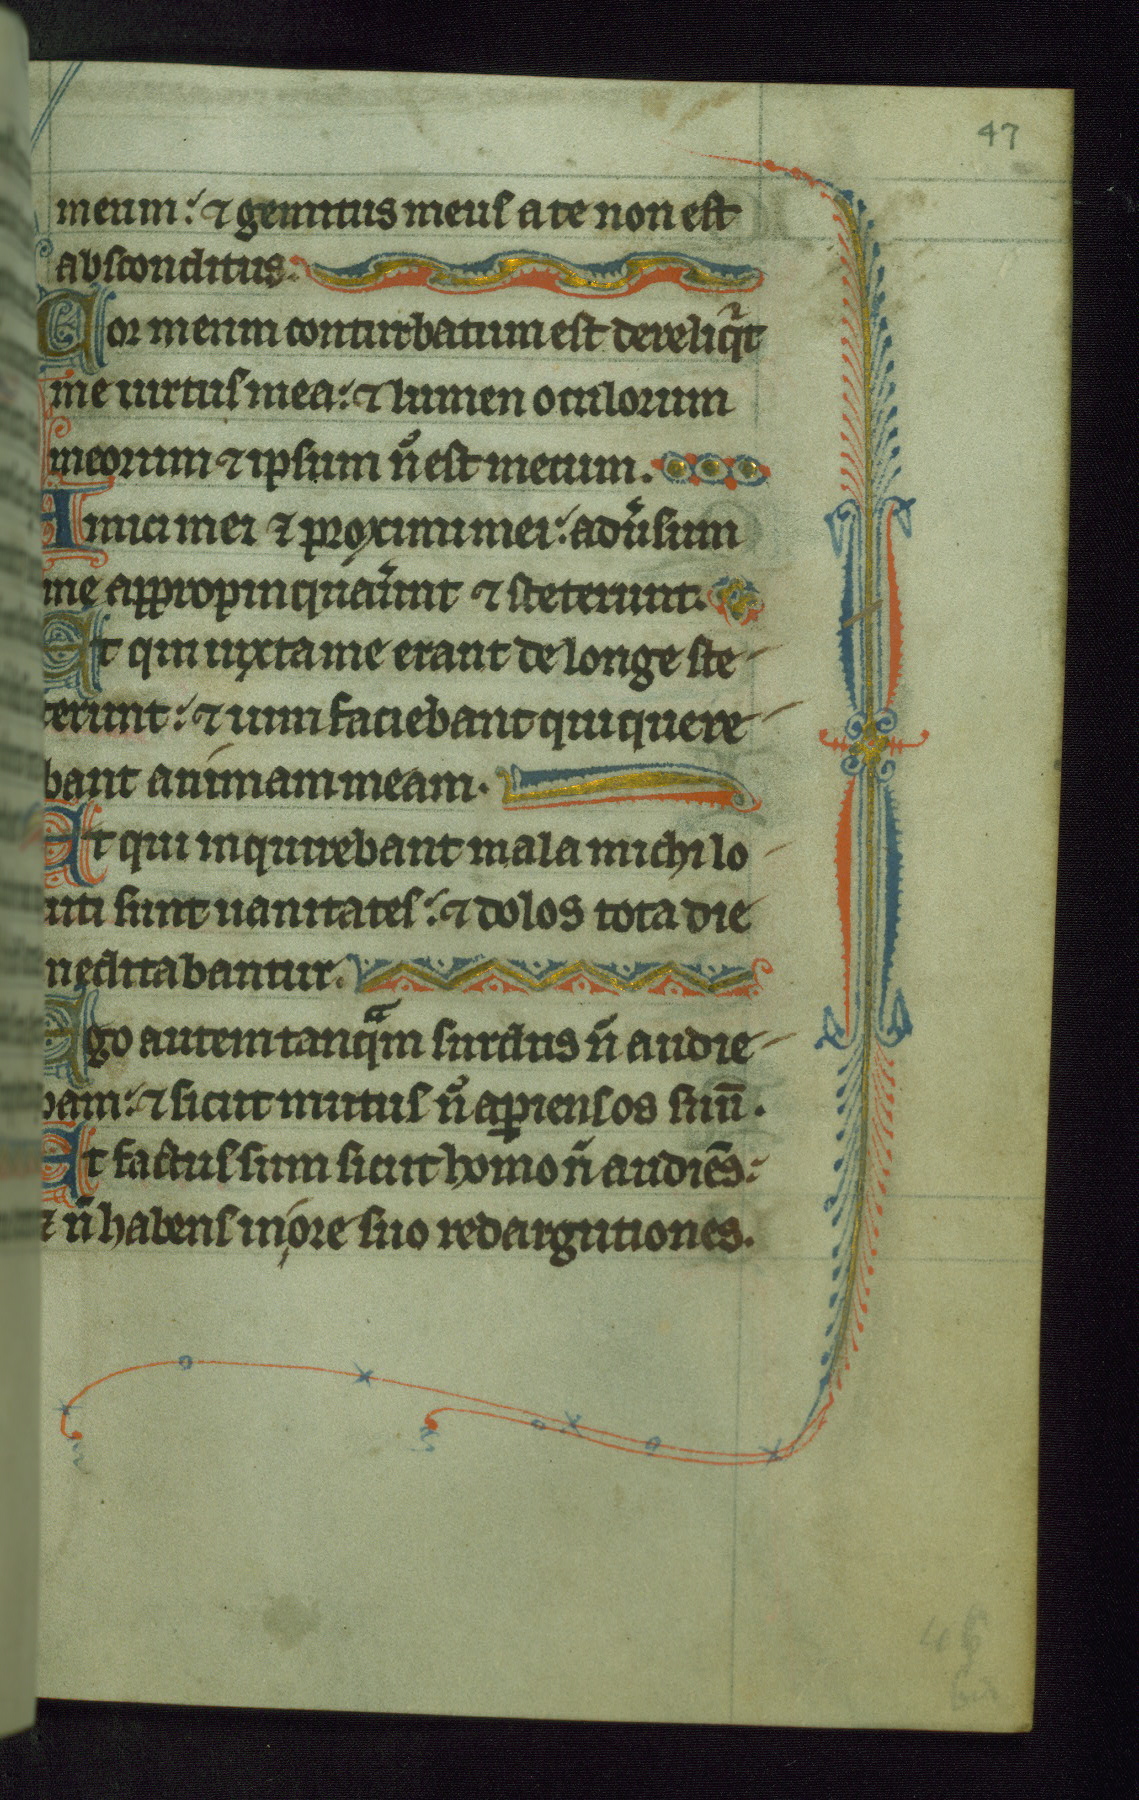 47
meum: ⁊ gemitus meus a te non est
absconditus.
Cor meum conturbatum est dereliq̃t
me uirtus mea: ⁊ lumen oculorum
meorum ⁊ ipsum n̄ est mecum.
Amici mei ⁊ proximi mei: adũsum
me appropinquaũunt ⁊ steterunt.
Et qui iuxta me erant de longe ste
terunt: ⁊ uim faciebant qui quere
bant animam meam.
Et qui inquirebant mala michi lo
cuti sunt uanitates: ⁊ dolos tota die
meditabantur.
Ego autem tanqᵃm surdus n̄ audie
bam: ⁊ sicut mutus n̄ aperiens os suū.
Et factus sum sicut homo n̄ audiēs:
⁊ n̄ habens in ore suo redargutiones.